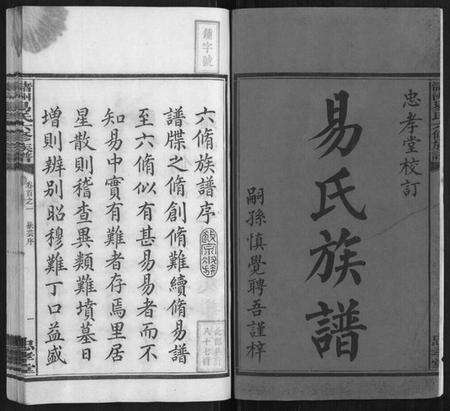 忠孝堂校訂
易氏族譜
嗣孫慎覺聘吾謹梓
六脩族譜序
譜牒之脩創脩難續脩易譜
至六脩似有甚易易者而不
知易中實有難者存焉里居
星散則稽查異類難墳墓日
增則辨別昭穆難丁口益盛
卷首之一
一
忠孝堂